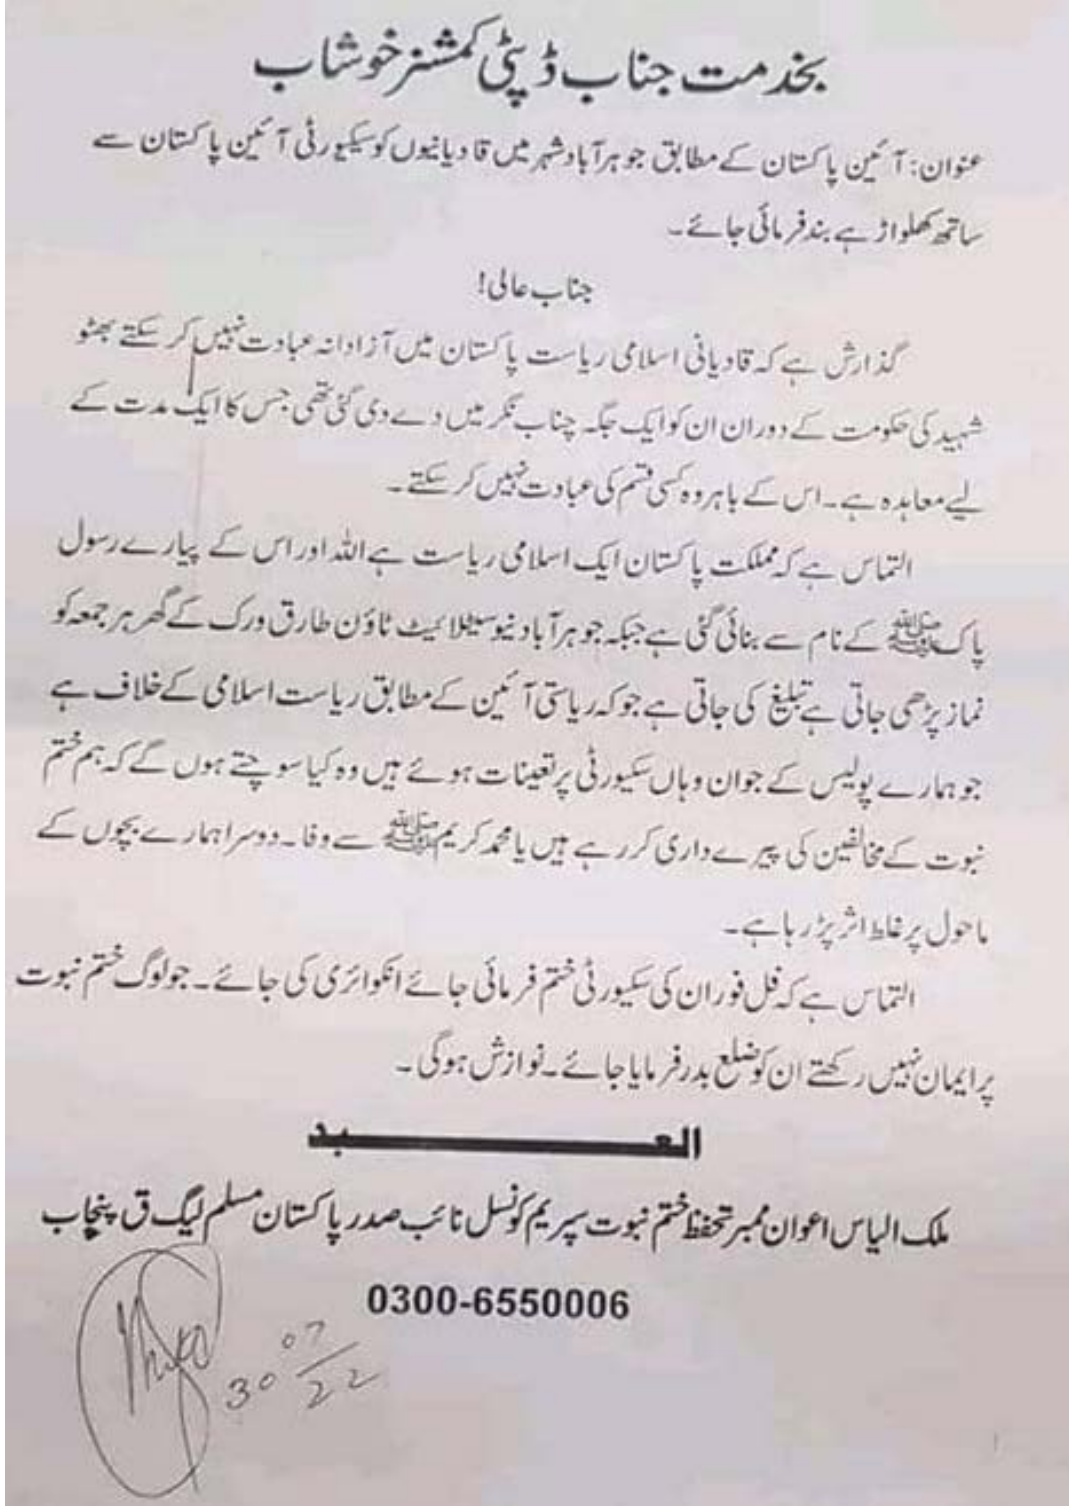 بخدمت جناب ڈپٹی کمشنر خوشاب
عنوان: آئین پاکستان کے مطابق جوہرآباد شہر میں قادیانیوں کو سیکیورٹی آئین پاکستان سے
ساتھ کھلواڑ ہے بند فرمائی جائے۔
جناب عالی!
گذارش ہے کہ قادیانی اسلامی ریاست پاکستان میں آزادانہ عبادت نہیں کر سکتے بھٹو
شہید کی حکومت کے دوران ان کو ایک جگہ چناب نگر میں دے دی گئی تھی جس کا ایک مدت کے
لیے معاہدہ ہے۔ اس کے باہر وہ کسی قسم کی عبادت نہیں کر سکتے۔
التماس ہے کہ مملکت پاکستان ایک اسلامی ریاست ہے اللہ اور اس کے پیارے رسول
پاک ﷺ کے نام سے بنائی گئی ہے جبکہ جوہرآباد نیو سیٹلائیٹ ٹاؤن طارق ورک کے گھر ہر جمعہ کو
نماز پڑھی جاتی ہے تبلیغ کی جاتی ہے جو کہ ریاستی آئین کے مطابق ریاست اسلامی کے خلاف ہے
جو ہمارے پولیس کے جوان وہاں سکیورٹی پر تعینات ہوئے ہیں وہ کیا سوچتے ہوں گے کہ ہم ختم
نبوت کے مخالفین کی پیرے داری کر رہے ہیں یا محمد کریم ﷺ سے وفا۔ دوسرا ہمارے بچوں کے
ماحول پر غلط اثر پڑ رہا ہے۔
التماس ہے کہ فل فور ان کی سکیورٹی ختم فرمائی جائے انکوائری کی جائے۔ جو لوگ ختم نبوت
پر ایمان نہیں رکھتے ان کو ضلع بدر فرمایا جائے۔ نوازش ہوگی۔
العبد
ملک الیاس اعوان ممبر تحفظ ختم نبوت سپریم کونسل نائب صدر پاکستان مسلم لیگ ق پنجاب
0300-6550006
30 07/22